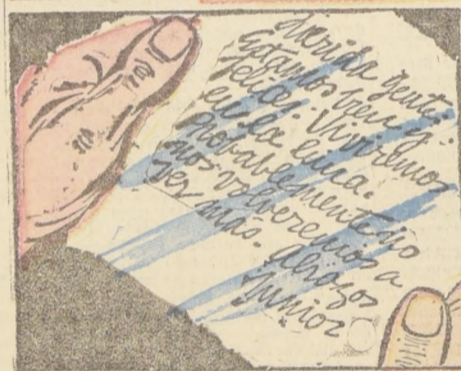 Querida gente:
estamos bien y
feliz. Viviremos
en la luna.
Probablemente no
nos volveremos a
ver más. Abrazos
Junior